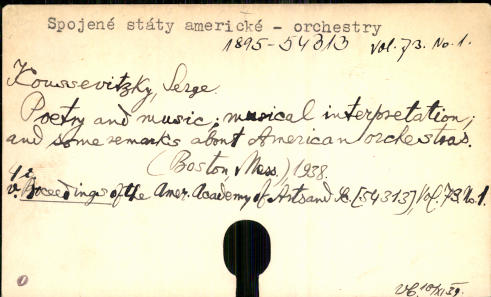 Spojené státy americké - orchestry
1895-54313 Vol. 73. No. 1.
Koussevitzky, Serge.
Poetry and music; musical interpretation;
and some remarks about American orchestras.
(Boston, Mass.) 1938.
4i
v. Proceedings of the Amer. Academy of Arts and Sc. [54313], Vol. 73. No. 1.
VC. 10/XI 39.